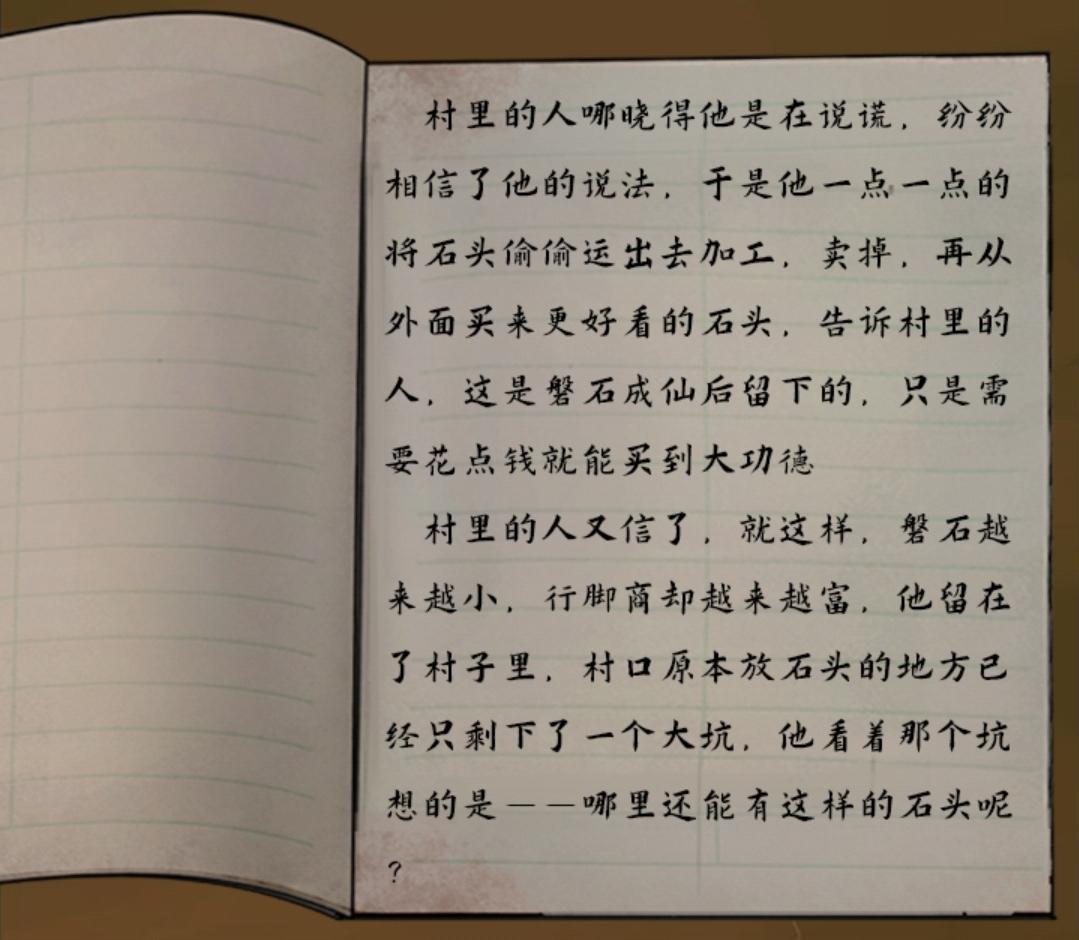 村里的人哪晓得他是在说谎，纷纷
相信了他的说法，于是他一点一点的
将石头偷偷运出去加工，卖掉，再从
外面买来更好看的石头，告诉村里的
人，这是磐石成仙后留下的，只是需
要花点钱就能买到大功德
村里的人又信了，就这样，磐石越
来越小，行脚商却越来越富，他留在
了村子里，村口原本放石头的地方已
经只剩下了一个大坑，他看着那个坑
想的是——哪里还能有这样的石头呢
？